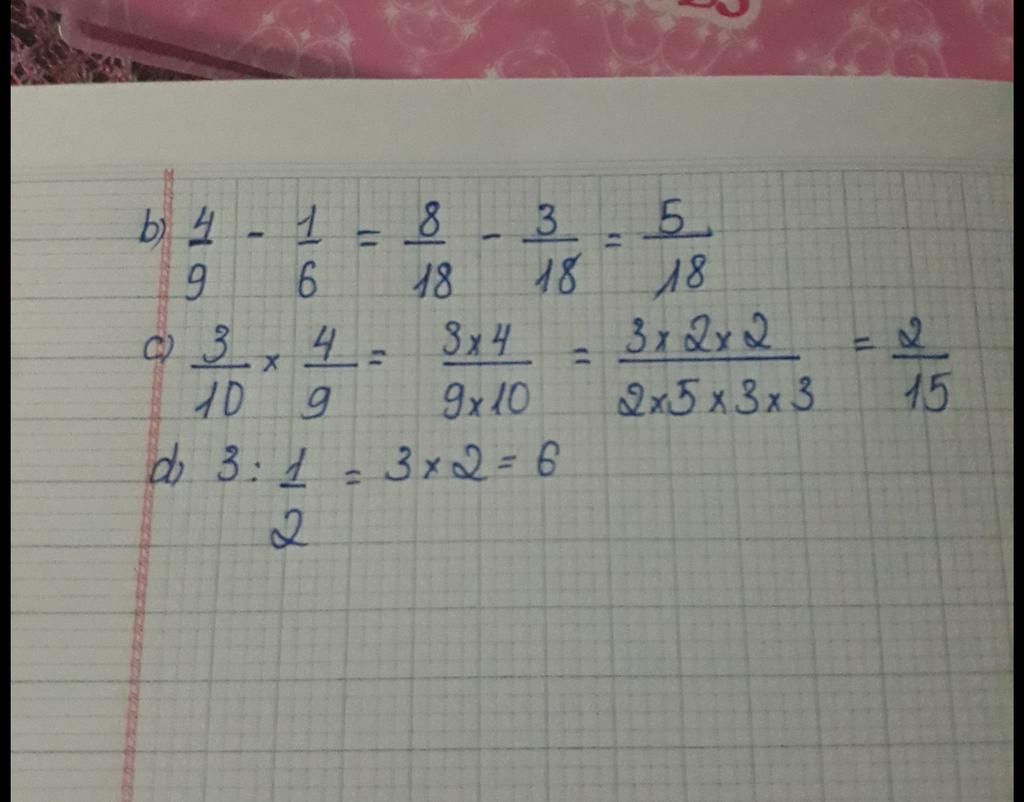 b) 4/9 - 1/6 = 8/18 - 3/18 = 5/18
c) 3/10 × 4/9 = 3×4/9×10 = 3×2×2/2×5×3×3 = 2/15
d) 3 : 1/2 = 3×2 = 6